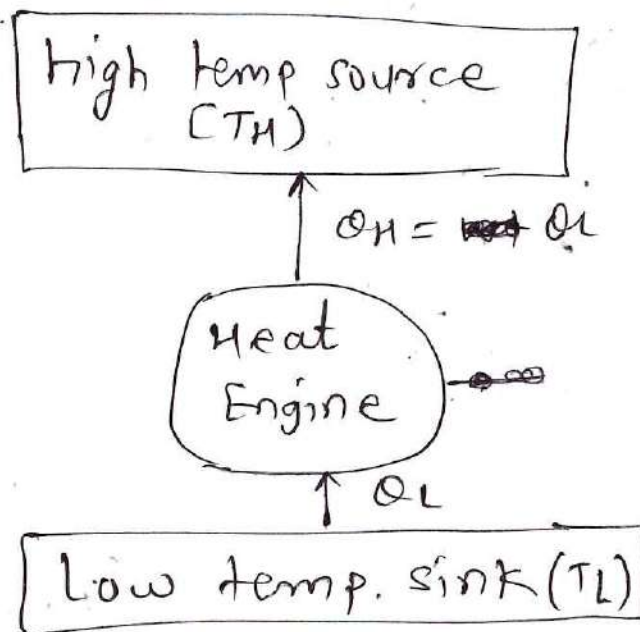 high temp source
(TH)
QH = QL
Heat
Engine
QL
Low temp. sink (TL)